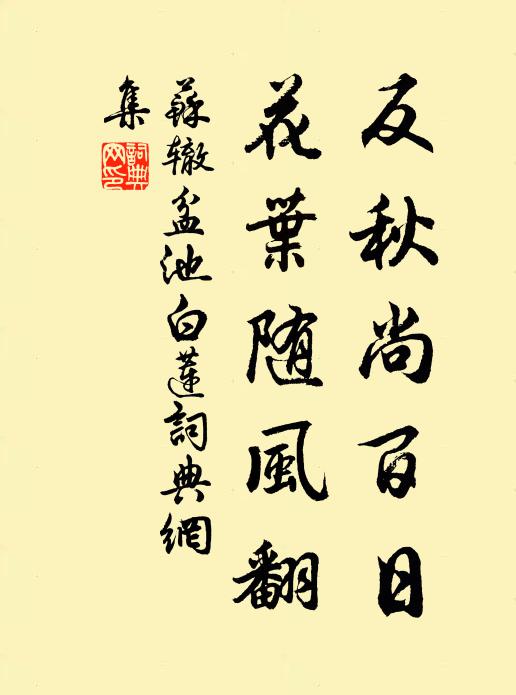 反秋尚百日
花葉随風翻
蘇辙盆池白蓮詞典網
集
詞典網印